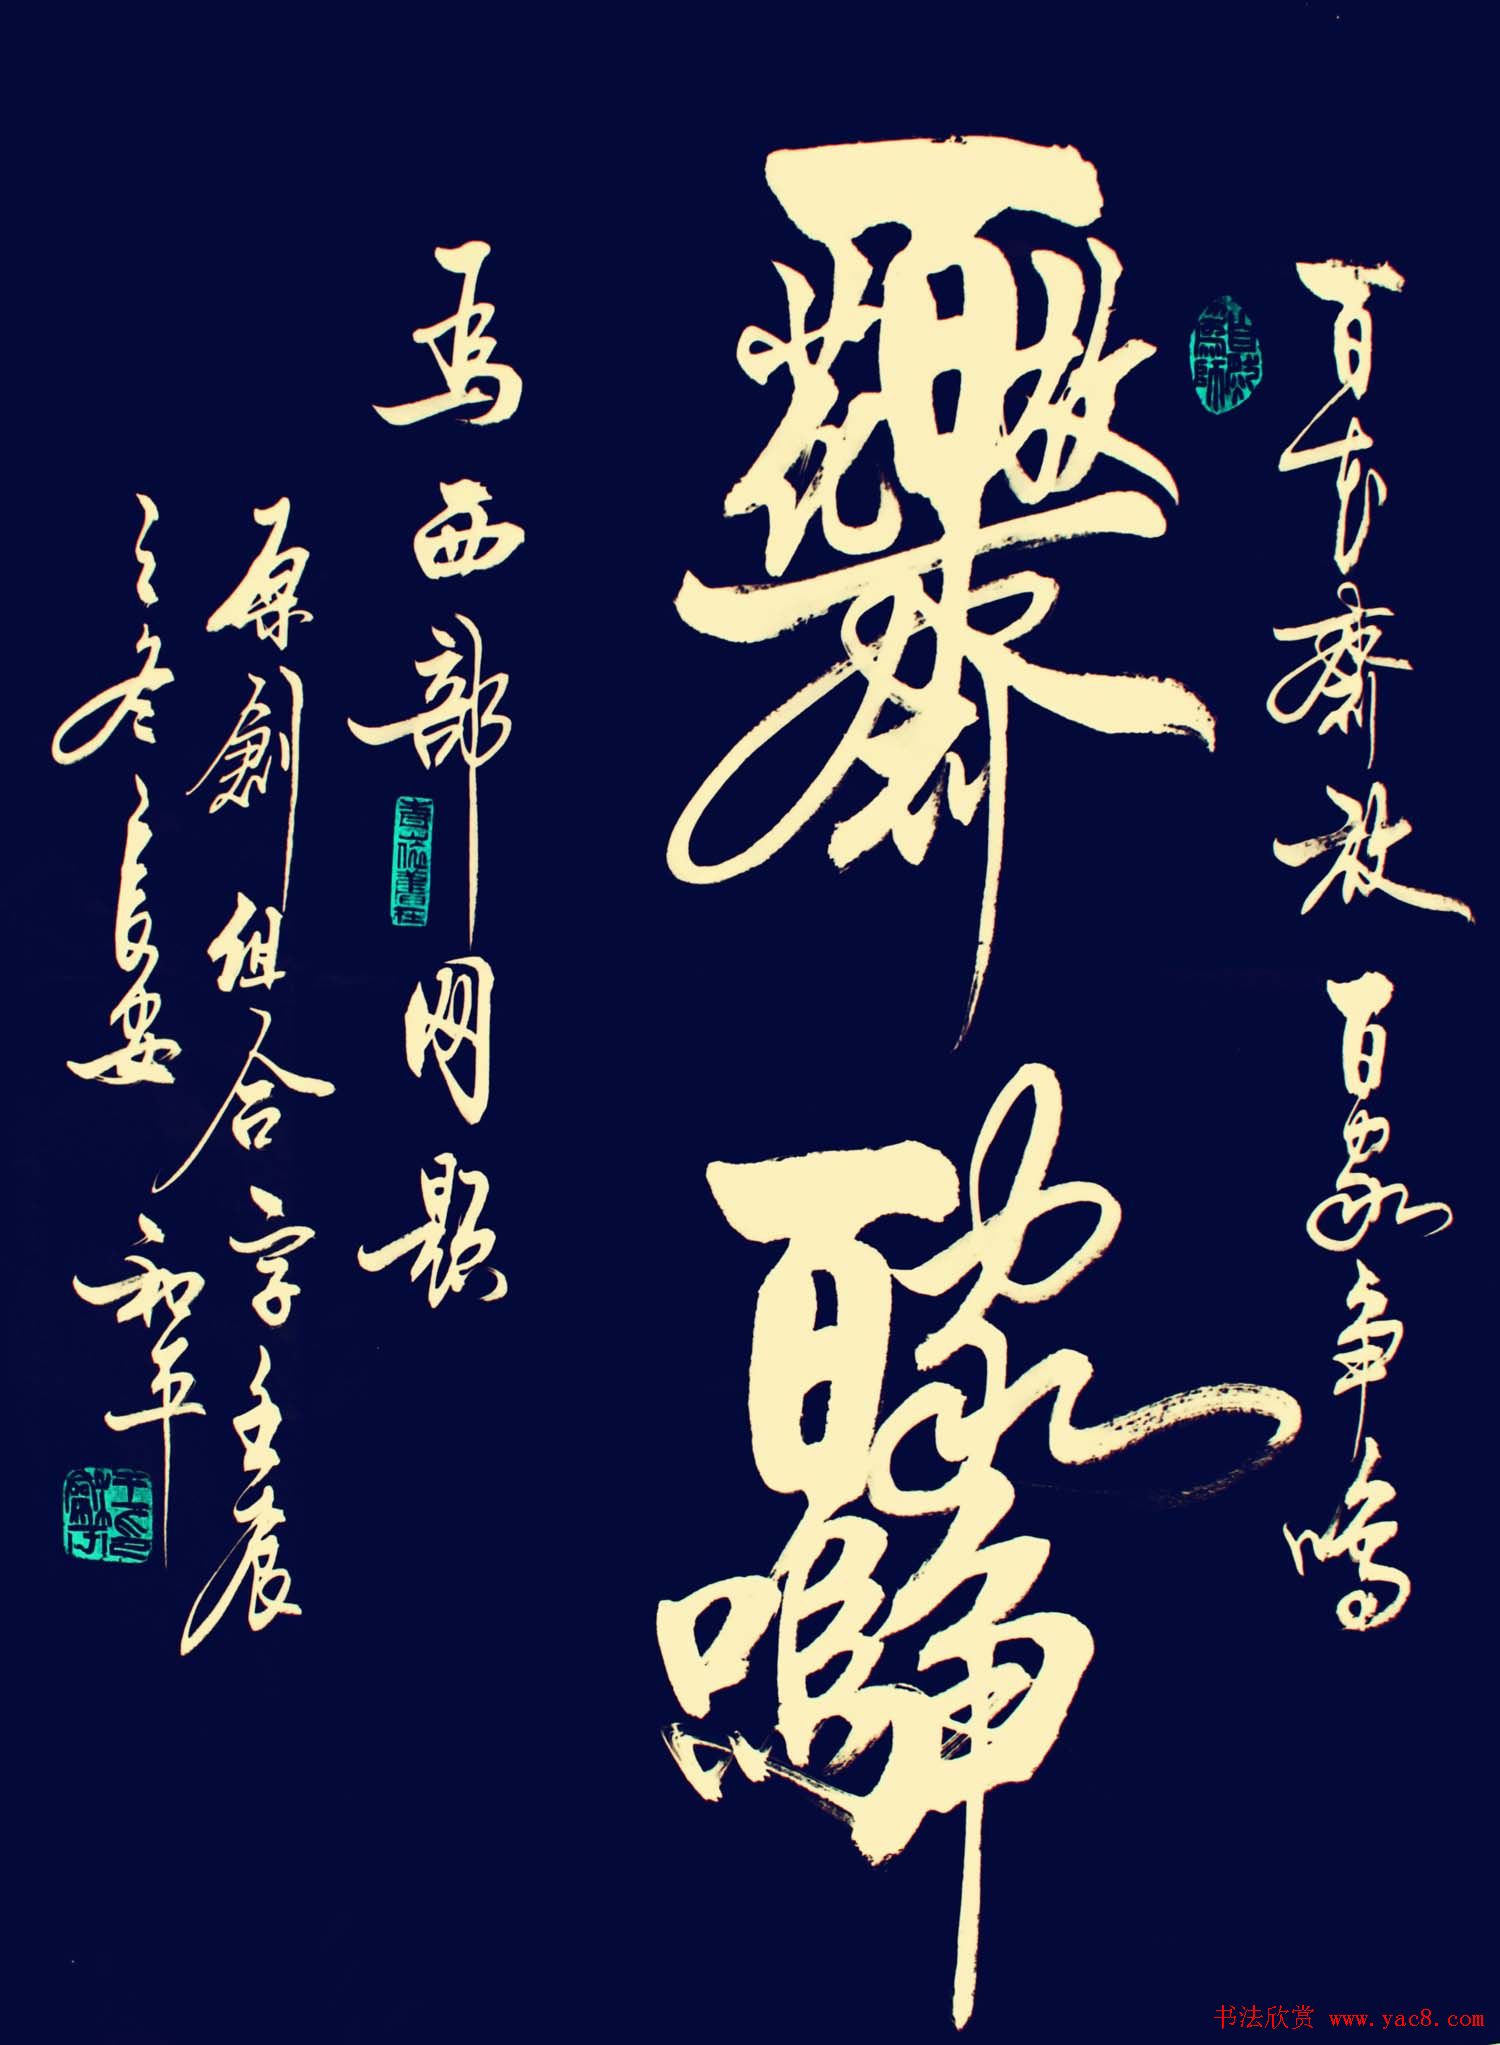 百花齐放 百家争鸣
为西部网题
原創组合字壬辰
之冬长安和平
书法欣赏 www.yac8.com